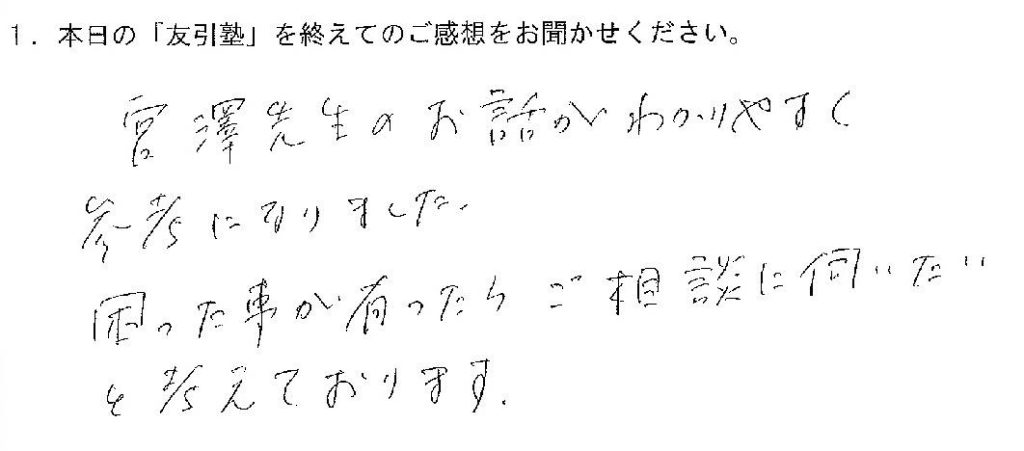 1．本日の「友引塾」を終えてのご感想をお聞かせください。
宮澤先生のお話がわかりやすく
参考になりました。
困った事が有ったらご相談に伺いたい
と考えております。